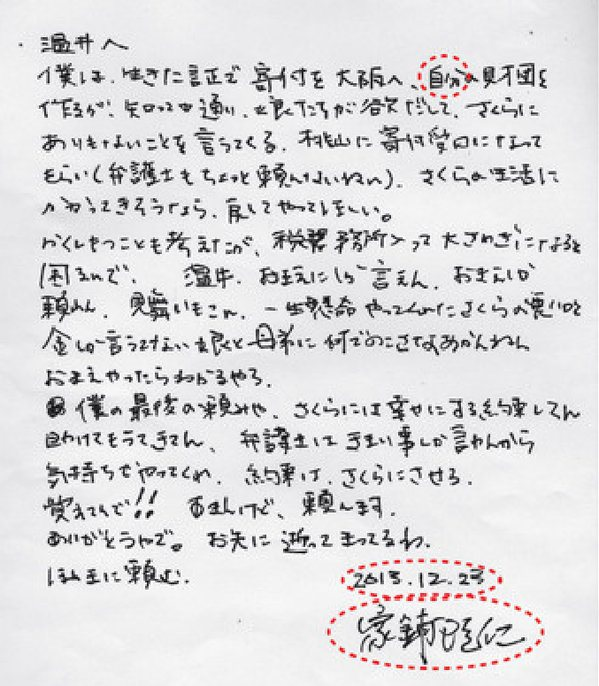 温井へ
僕は、生きた証で寄付を大阪へ、自分の財団を
作るが、知っての通り、娘たちが欲だして、さくらに
ありもしないことを言うてくる。桃山に寄付受口になって
もらい(弁護士もちょっと頼んないねん)、さくらの生活に
かかってきそうなら、戻してやってほしい。
かくしもつことも考えたが、事務所入って大さわぎになると
困るんで、温井、おまえにしか言えん、おまえしか
頼れん、見舞いもこん、一生懸命やってくれたさくらの悪口と
金しか言うてない娘と母弟に何でのこさなあかんねん
おまえやったらわかるやろ。
僕の最後の頼みや、さくらには幸せにする約束してん
助けてもうてきてん、弁護士は事しか言わんから
気持ちでやってくれ、約束は、さくらにさせる。
覚えてんで!! すまんけど、頼んます。
ありがとうやで。お先に逝ってまってるわ。
ほんまに頼む。
2013.12.23
家鋪隆仁